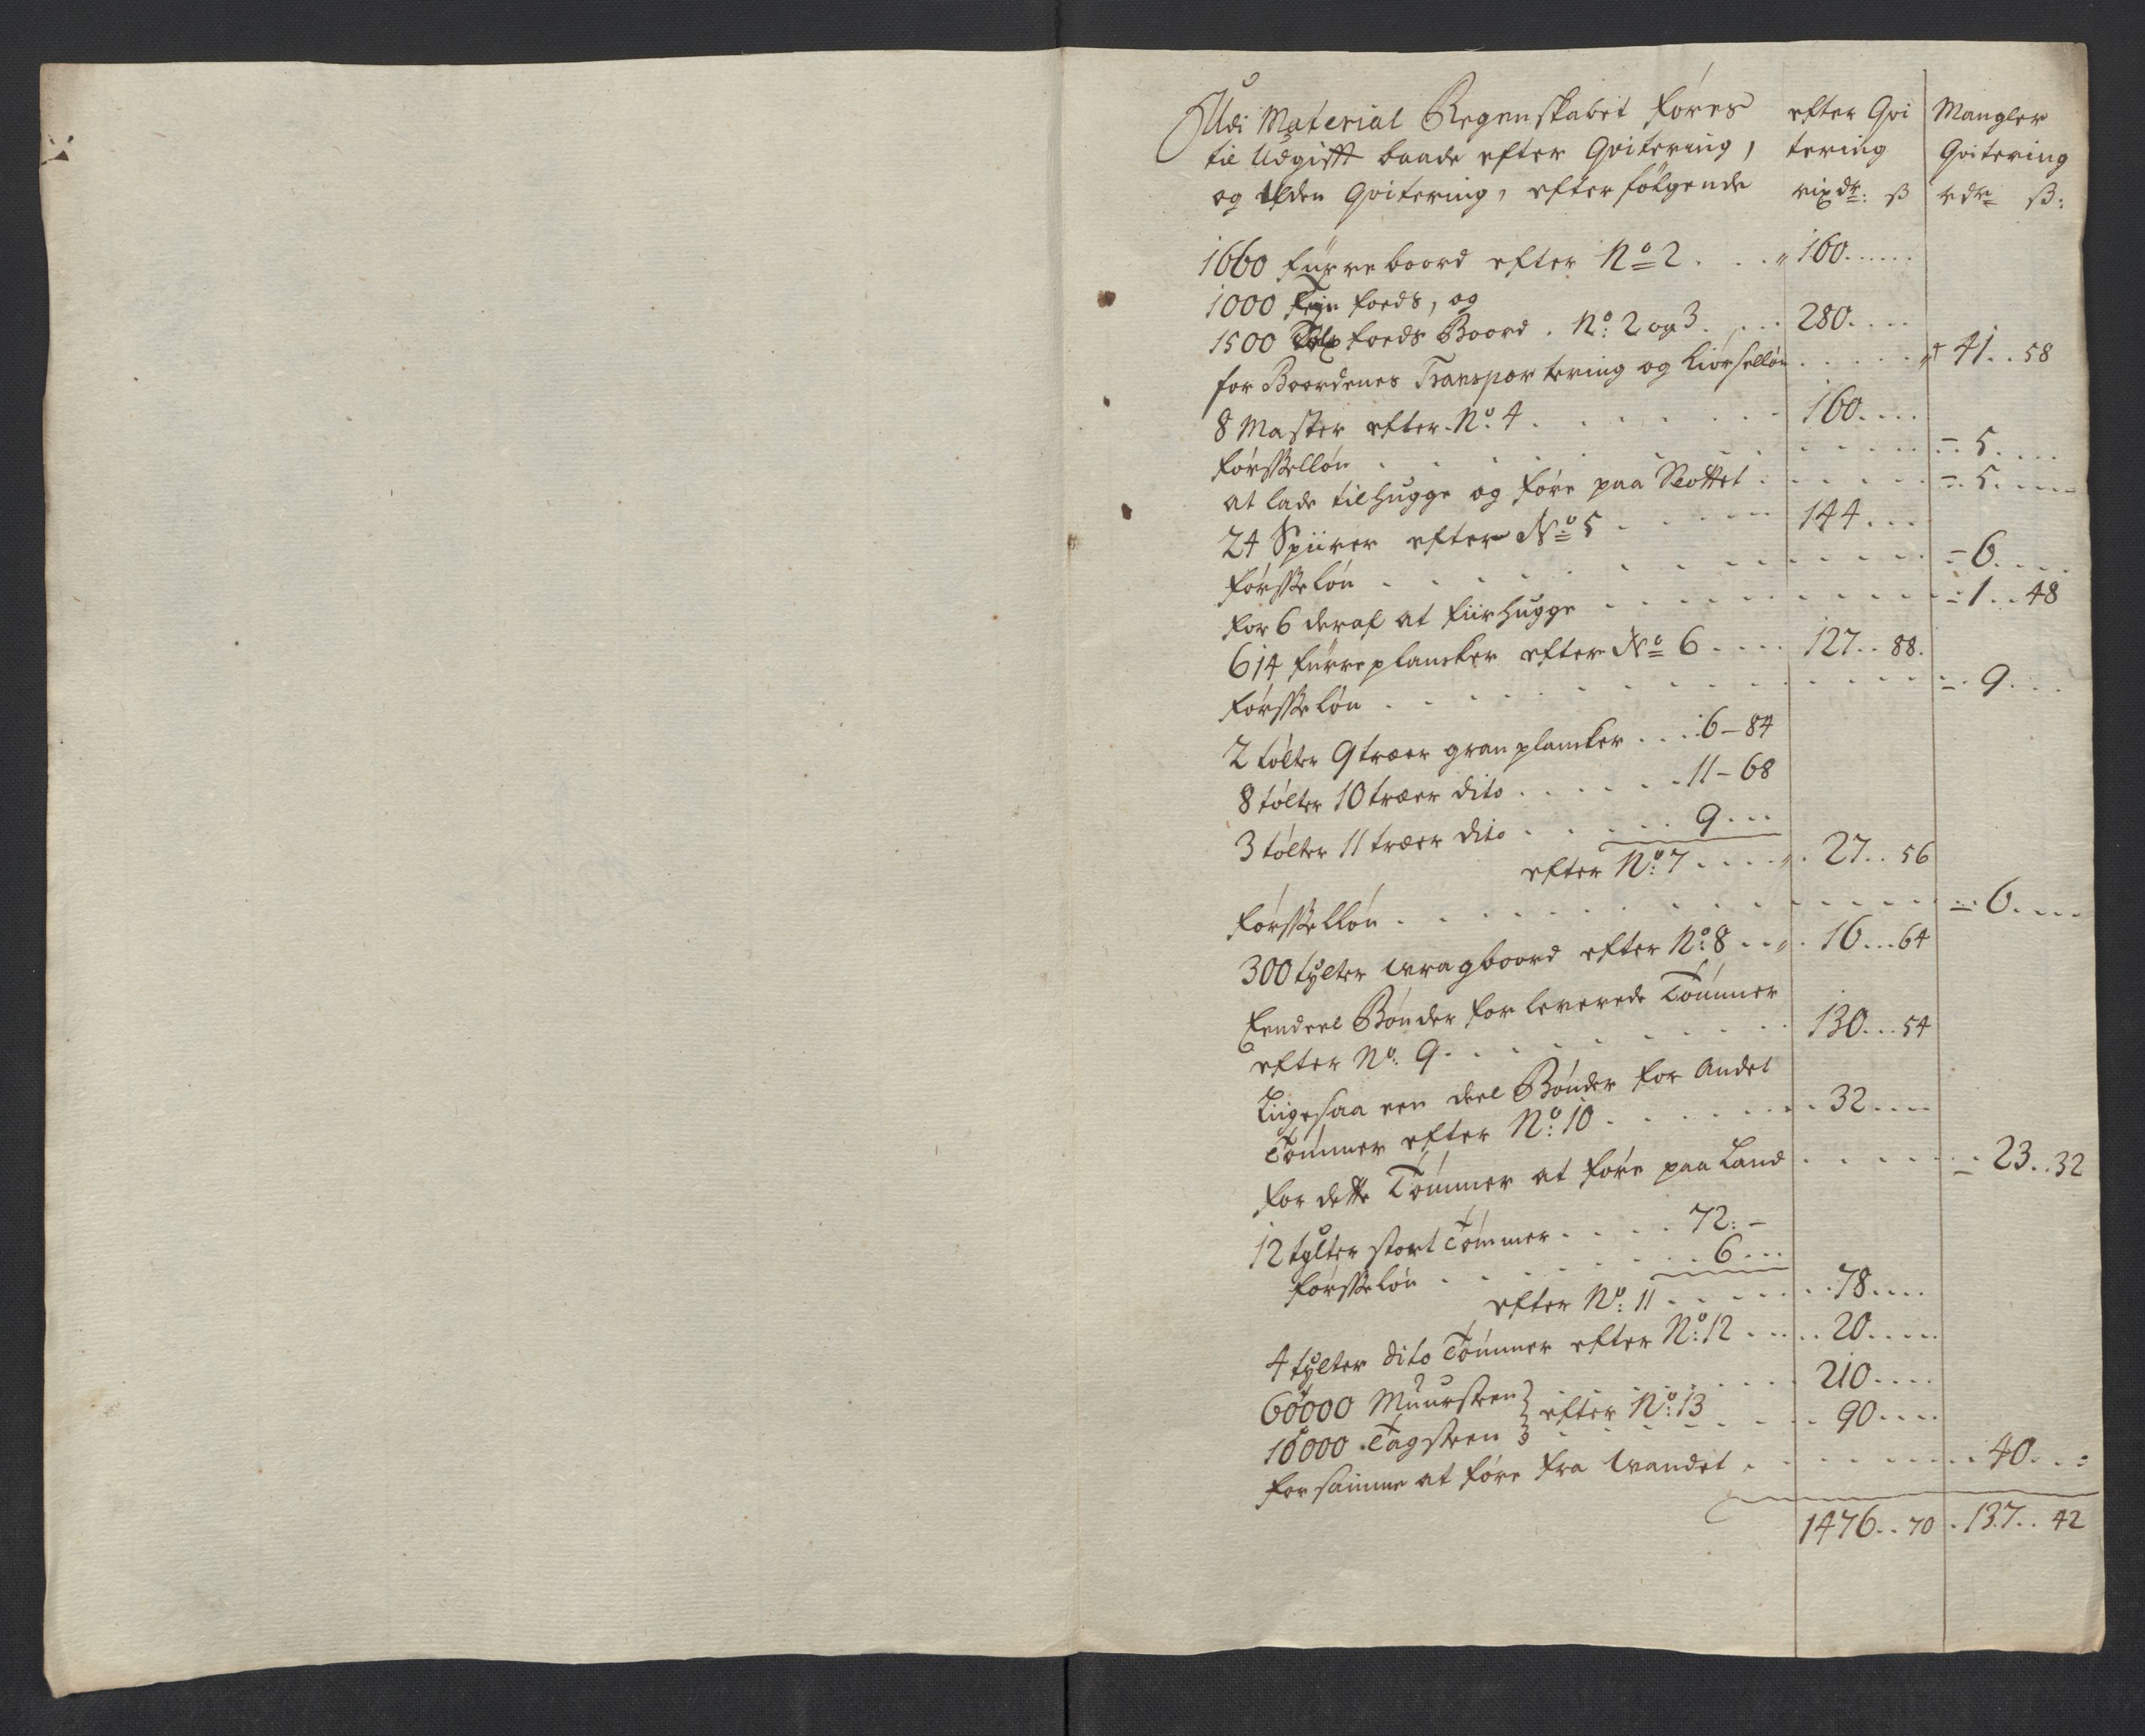 Udi Material Regenskabet føres efter Qvi Mangler
til Udgifft baade efter Qvitering, tering Qvitering
og uden Qvitering, efterfølgende rixdr: ß rdr ß:
1660 fürreboord efter No 2 . . . 160 . . . . .
1000 foeds, og
1500 foeds Boord . No: 2 og 3 . . . 280 . . . .
for Boordenes Transportering og Kiørselløn . . . . . 41 . . 58
8 Master efter No. 4 . . . . . 160 . . . .
førsselløn . . . . . . = 5 . . . .
at lade tilhugge og føre paa Slottet . . . . . = 5 . . . .
24 Spiirer efter No 5 . . . . . 144 . . .
førsseløn . . . . . . . = 6 . . . .
for 6 deraf at fiirhugge . . . . . . = 1 . . 48
614 fürreplancker efter No 6 . . . . 127 . . 88.
førsseløn . . . . . . = 9 . . .
2 tølter 9 træer granplancker . . . 6 - 84
8 tølter 10 træer dito . . . . . . 11 - 68
3 tølter 11 træer dito . . . . . . 9 . . .
efter No: 7 . . . . 27 . . 56
førsselløn . . . . . . . = 6 . . . .
300 tylter wragboord efter No: 8 . . . 16 . . . 64
Eendeel Bønder for leverede Tømmer
efter No: 9 . . . . . . . 130 . . . 54
Liigesaa een deel Bønder for andet
Tømmer efter No: 10 . . . . . . 32 . . . .
for dette Tømmer at føre paa Land . . . . . = 23 . . 32
12 tylter stort Tømmer . . . . 72: -
førsseløn . . . . . . 6 . . .
efter No: 11 . . . . . 78 . . . .
4 tylter dito Tømmer efter No: 12 . . . . 20 . . . . .
60000 Muursteen } . . . . . . 210 . . . .
efter No: 13
10000 Tagsteen } . . . . . . 90 . . . .
for samme at føre fra wandet . . . . . . . 40 . . .
1476 . . 70 . 137 . . 42